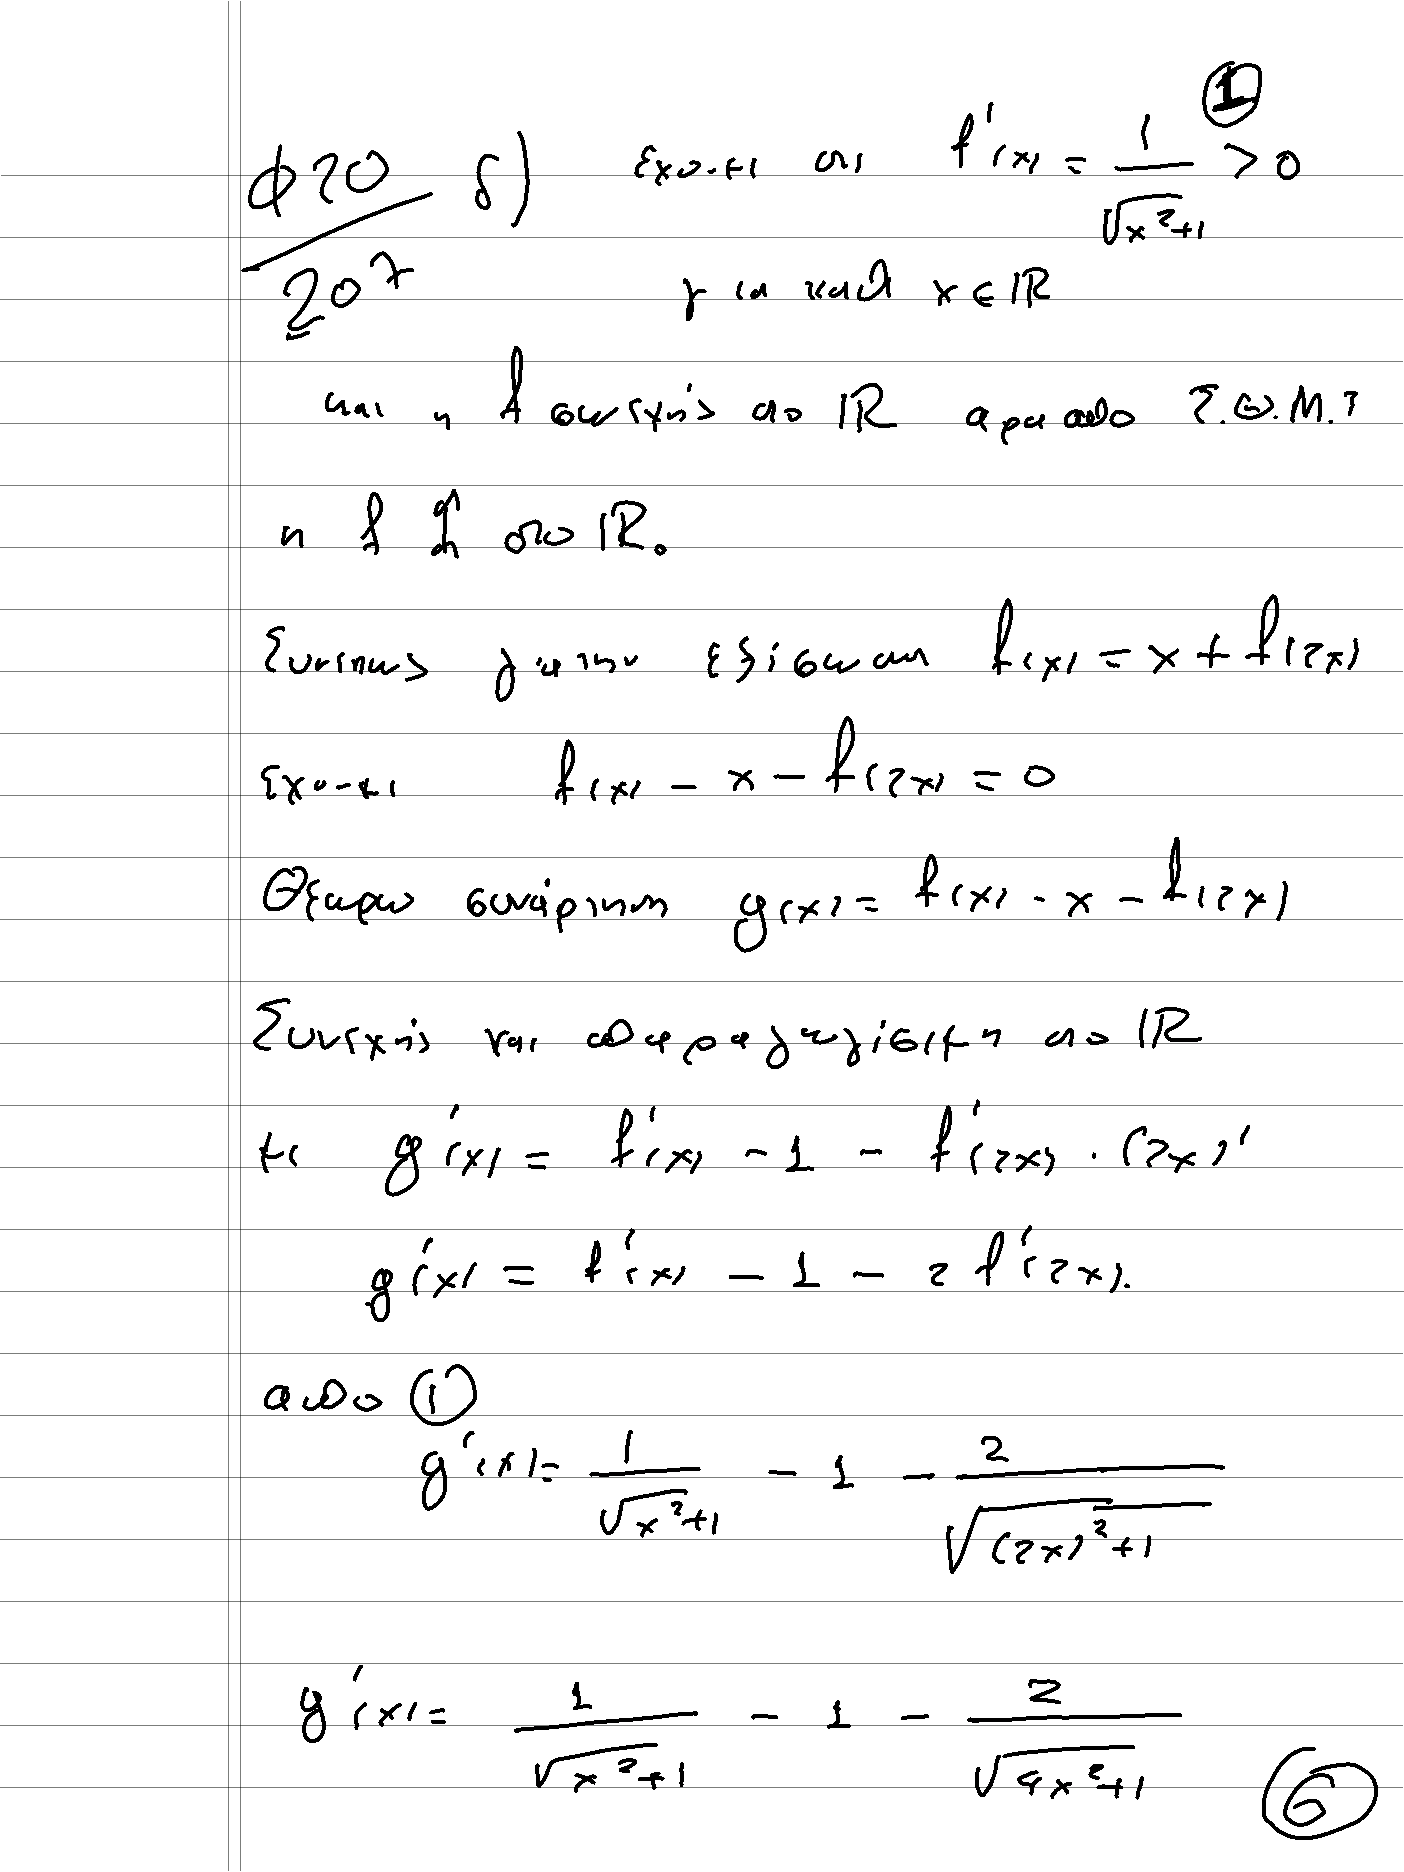 ①
Φ20/207 δ) έχουμε ότι f'(x) = 1/√(x²+1) > 0
για κάθε x ∈ ℝ
και η f συνεχής στο ℝ άρα από Σ.Θ.Μ.Τ
η f ↑ στο ℝ.
Συνεπως για την εξίσωση f(x) = x + f(2x)
έχουμε f(x) - x - f(2x) = 0
Θεωρω συνάρτηση g(x) = f(x) - x - f(2x)
Συνεχής και παραγωγίσιμη στο ℝ
με g'(x) = f'(x) - 1 - f'(2x) · (2x)'
g'(x) = f'(x) - 1 - 2 f'(2x).
απο ①
g'(x) = 1/√(x²+1) - 1 - 2/√((2x)²+1)
g'(x) = 1/√(x²+1) - 1 - 2/√(4x²+1)
⑥